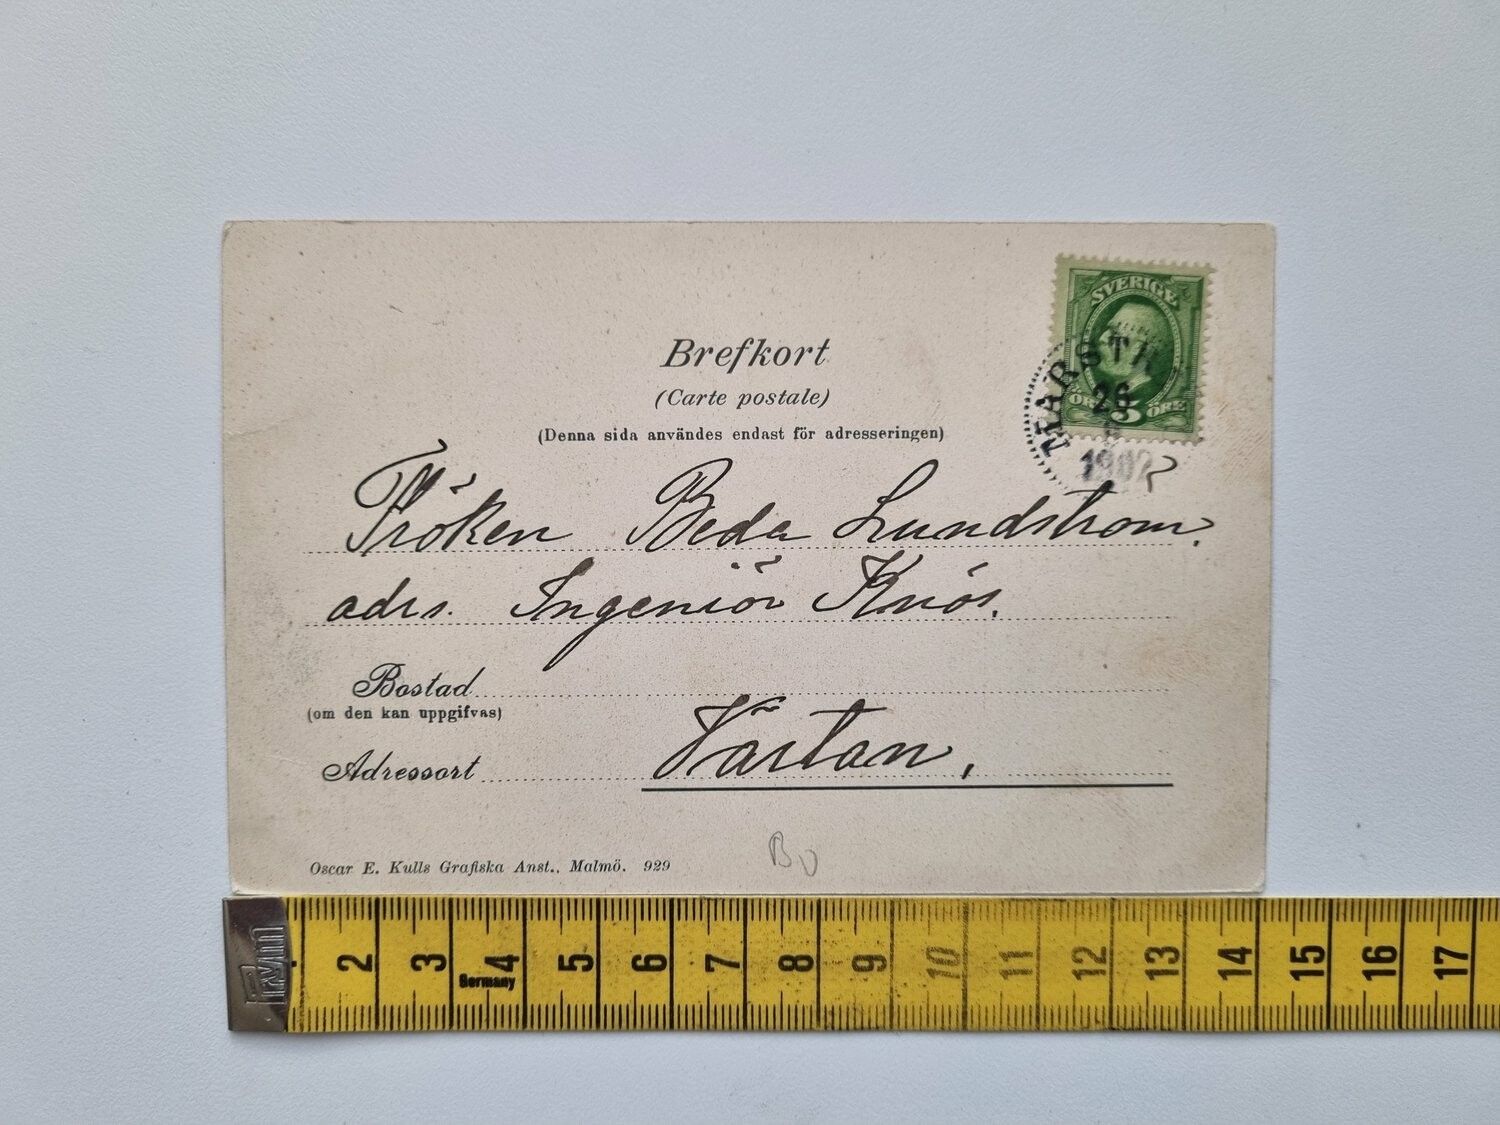 SVERIGE
MARSTR
26
5
ÖRE ÖRE
1902
Brefkort
(Carte postale)
(Denna sida användes endast för adresseringen)
Fröken Beda Lundström.
adrs. Ingeniör Knös.
Bostad
(om den kan uppgifvas)
Adressort
Värtan,
Oscar E. Kulls Grafiska Anst., Malmö. 929
BO
2 3 4 5 6 7 8 9 10 11 12 13 14 15 16 17
Germany